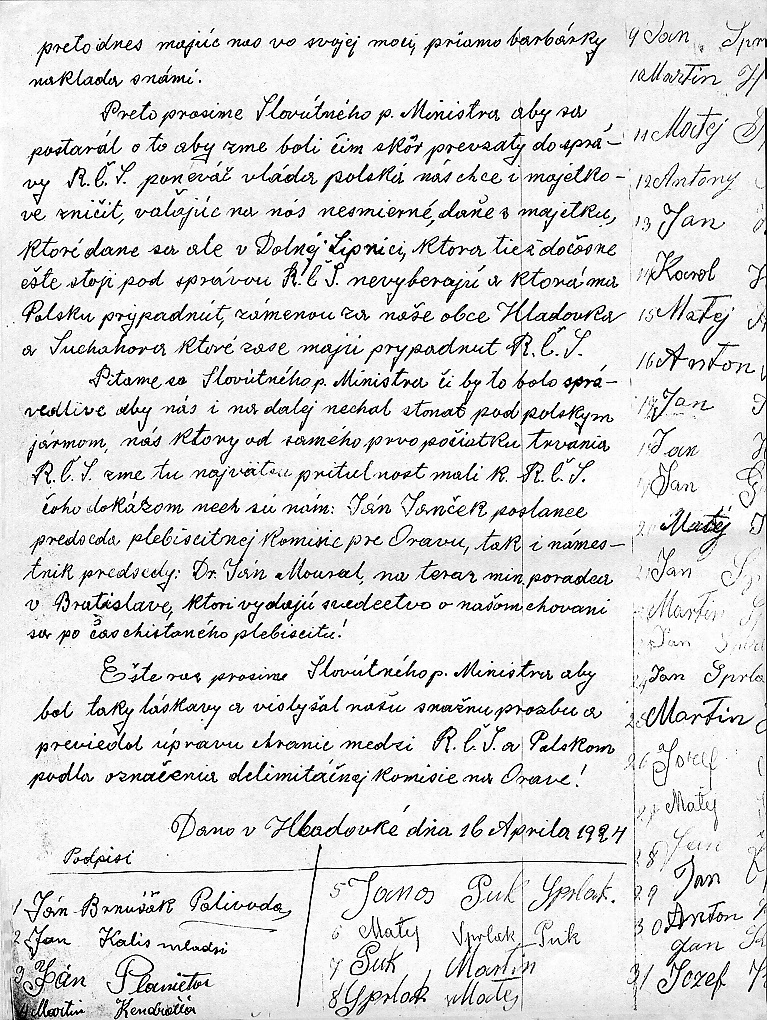 preto dnes majúc nas vo svojej moci, priamo barbársky
naklada snámi.
Preto prosime Slovútného p. Ministra aby sa
postarál o to aby zme boli čim skôr prevzatý do sprá-
vy R.Č.S. poneváč vláda polská nás chce i majetko-
ve zničiť, vaľajúc na nás nesmierné, daňe z majetku,
ktoré dane sa ale v Dolnéj Lipnici, ktora tiež dočasne
ešte stoji pod správou R.Č.S. nevyberajú a ktorá ma
Polsku prypadnúť, zámenou za naše obce Hladovka
a Suchahora ktoré zase majú prypadnuť R.Č.S.
Pitame sa Slovútného p. Ministra či by to bolo sprá-
vedlive aby nás i na dalej nechal stonať pod polskym
jármom, nás ktory od samého prvopočiatku trvánia
R.Č.S. zme tu najvätšu pritulnost mali k R.Č.S.
čoho dokázom nech sú nám: Ján Janček poslanec
predseda plebiscitnej komisie pre Oravu, tak i námes-
tnik predsedy: Dr. Ján Moural, na teraz min. poradca
v Bratislave, ktori vydajú svedectvo o našom chovani
sa po čas chistaného plebiscitu!
Ešte raz prosime Slovútného p. Ministra aby
bol taky láskavy a vislyšal našu snažnu prozbu a
previedol úpravu chranic medzi R.Č.S. a Polskom
podla označenia delimitáčnej komisie na Orave!
Dano v Hladovké dňa 16 Aprila 1924
Podpisi
1 Ján Brnušák Palivoda
2 Jan Kalis mladsi
3 Ján Planietar
4 Martin Kendralla
5 Janos Puk Sprlak.
6 Matej Sprlak Puk
7 Puk Martin
8 Sprlak Matej
9 Jan Spr
10 Martin
11 Matej
12 Antony
13 Jan
14 Karol
15 Matej
16 Anton
17 Jan
18 Jan
19 Jan
20 Matej
21 Jan Sp
22 Martin
23 Jan
24 Jan Sprla
25 Martin
26 Jozef
27 Matej
28 Jan
29 Jan
30 Anton
Jan
31 Jozef